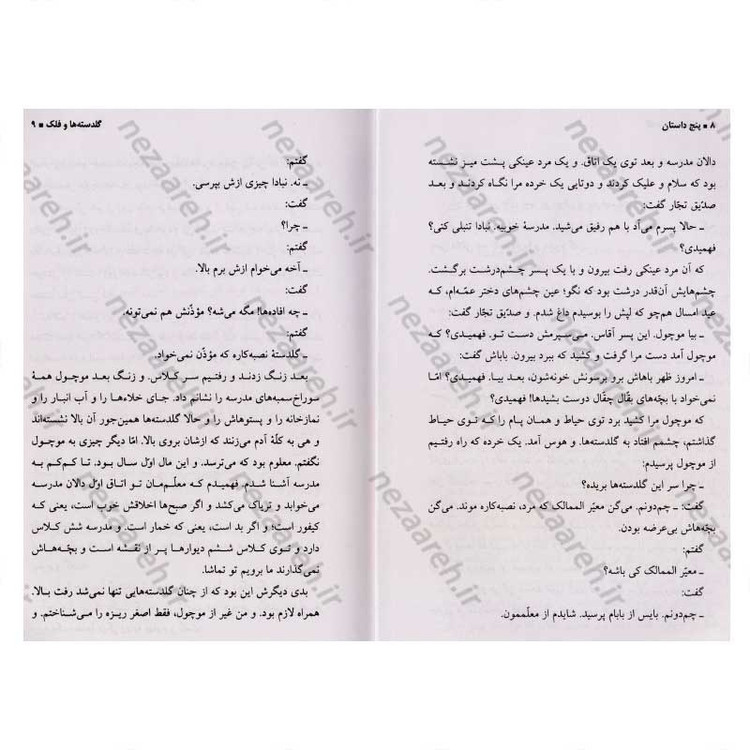 ۸ ■ پنج داستان
دالان مدرسه و بعد توی یک اتاق. و یک مرد عینکی پشت میز نشسته
بود که سلام و علیک کردند و دوتایی یک خرده مرا نگاه کردند و بعد
صدّیق تجّار گفت:
ـ حالا پسرم می‌آد با هم رفیق می‌شید. مدرسهٔ خوبیه. نبادا تنبلی کنی؟
فهمیدی؟
که آن مرد عینکی رفت بیرون و با یک پسر چشم‌درشت برگشت.
چشم‌هایش آن‌قدر درشت بود که نگو؛ عین چشم‌های دختر عمّه‌ام، که
عید امسال هم‌چو لپش را بوسیدم داغ شدم. و صدّیق تجّار گفت:
ـ بیا موچول. این پسر آقاس. می‌سپرمش دست تو. فهمیدی؟ که
موچول آمد دست مرا گرفت و کشید که ببرد بیرون. باباش گفت:
ـ امروز ظهر باهاش برو برسونش خونه‌شون، بعد بیا. فهمیدی؟ امّا
نمی‌خواد با بچّه‌های بقّال چقّال دوست بشیدها! فهمیدی؟
که موچول مرا کشید برد توی حیاط و همان پام را که توی حیاط
گذاشتم، چشمم افتاد به گلدسته‌ها. و هوس آمد. یک خرده که راه رفتیم
از موچول پرسیدم:
ـ چرا سر این گلدسته‌ها بریده؟
گفت: ـ چم‌دونم. می‌گن معیّر الممالک که مرد، نصبه‌کاره موند. می‌گن
بچّه‌هاش بی‌عرضه بودن.
گفتم:
ـ معیّر الممالک کی باشه؟
گفت:
ـ چم‌دونم. بایس از بابام پرسید. شایدم از معلّممون.
گلدسته‌ها و فلک ■ ۹
گفتم:
ـ نه. نبادا چیزی ازش بپرسی.
گفت:
ـ چرا؟
گفتم:
ـ آخه می‌خوام ازش برم بالا.
گفت:
ـ چه افاده‌ها! مگه می‌شه؟ مؤذّنش هم نمی‌تونه.
گفتم:
ـ گلدستهٔ نصبه‌کاره که مؤذّن نمی‌خواد.
بعد زنگ زدند و رفتیم سر کلاس. و زنگ بعد موچول همهٔ
سوراخ‌سمبه‌های مدرسه را نشانم داد. جای خلاءها را و آب انبار را و
نمازخانه را و پستوهاش را و حالا گلدسته‌ها همین‌جور آن بالا نشسته‌اند
و هی به کلّهٔ آدم می‌زنند که ازشان بروی بالا. امّا دیگر چیزی به موچول
نگفتم. معلوم بود که می‌ترسد. و این مال اوّل سال بود. تا کم‌کم به
مدرسه آشنا شدم. فهمیدم که معلّم‌مان تو اتاق اوّل دالان مدرسه
می‌خوابد و تریاک می‌کشد و اگر صبح‌ها اخلاقش خوب است، یعنی که
کیفور است؛ و اگر بد است، یعنی که خمار است. و مدرسه شش کلاس
دارد و توی کلاس ششم دیوارها پر از نقشه است و بچّه‌هاش
نمی‌گذارند ما برویم تو تماشا.
بدی دیگرش این بود که از چنان گلدسته‌هایی تنها نمی‌شد رفت بالا.
همراه لازم بود. و من غیر از موچول، فقط اصغر ریزه را می‌شناختم. و
nezaareh.ir
nezaareh.ir
nezaareh.ir
nezaareh.ir
nezaareh.ir
nezaareh.ir
nezaareh.ir
nezaareh.ir
nezaareh.ir